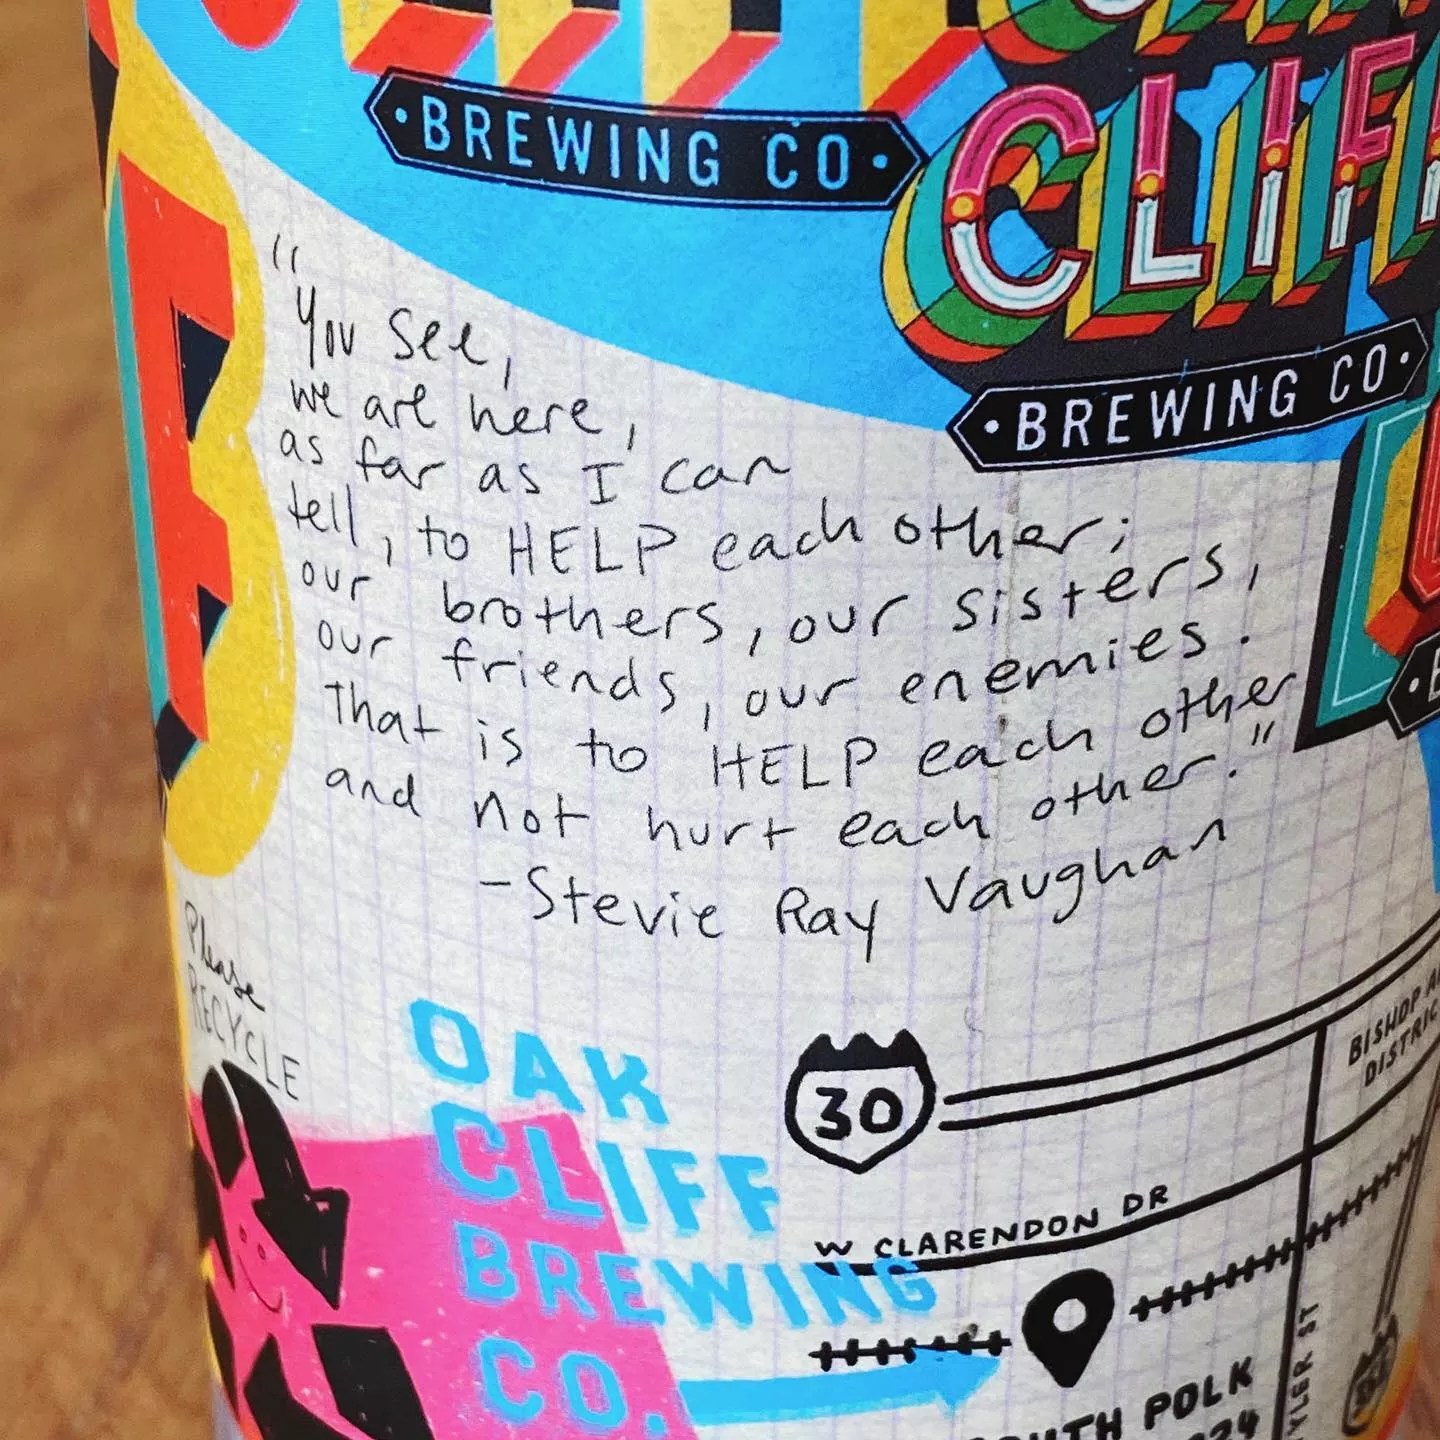 BREWING CO
CLIFF
BREWING CO
"You see,
we are here,
as far as I can
tell, to HELP each other;
our brothers, our sisters,
our friends, our enemies.
That is to HELP each other
and not hurt each other."
-Stevie Ray Vaughan
Please
RECYCLE
OAK
CLIFF
BREWING
CO.
30
BISHOP
W CLARENDON DR
POLK
ST